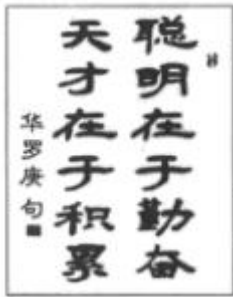 聪明在于勤奋
天才在于积累
华罗庚句